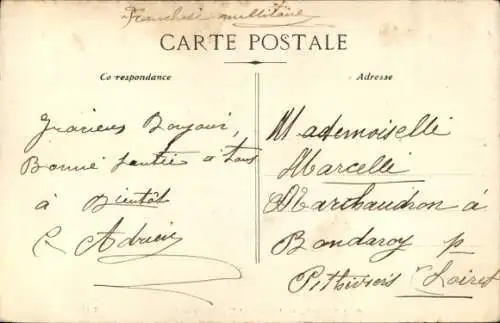 Franchise militaire
CARTE POSTALE
Correspondance
Adresse
Gracieus Bonjour,
Bonne santée a tous
à Bientôt
Adrien
Mademoiselle
Marcelle
Marchaudron à
Bondaroy p
Pithiviers Loiret